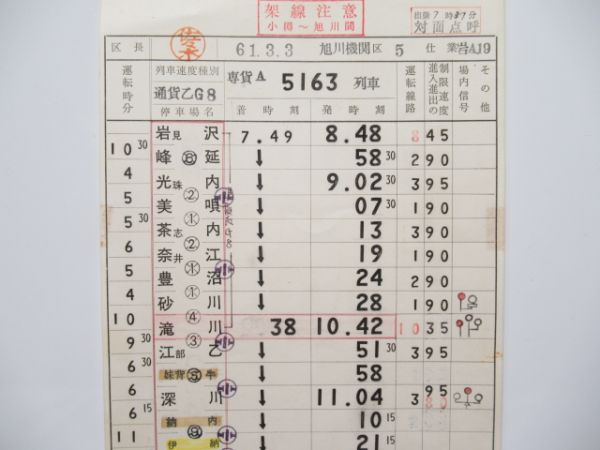 架線注意
小樽～旭川間
対面点呼
佐々木
区長 61.3.3 旭川機関区 5 仕業岩A19
運転時分 列車速度種別 専貨A 5163 列車 運転線路 制限速度 進入進出の 場内信号 その他
通貨乙G8
停車場名 着時刻 発時刻
岩見沢 7.49 8.48 8 45
10 30
峰延 ↓ 58 30 2 90
4
光珠内 ↓ 9.02 30 3 95
5
② 美唄 ↓ 07 30 1 90
5 30
① 茶志内 ↓ 13 3 90
6
② 奈井江 ↓ 19 1 90
5
① 豊沼 ↓ 24 2 90
4
① 砂川 ↓ 28 1 90
10
④ 滝川 38 10.42 10 35
9 30
③ 江部乙 ↓ 51 30 3 95
6 30
妹背牛 ↓ 58
6
深川 ↓ 11.04 3 95 80
6 15
納内 ↓ 10 15
11
伊納 ↓ 21 15